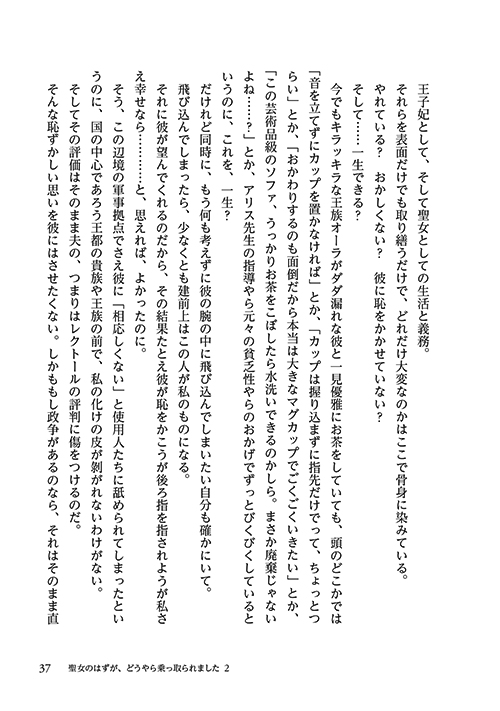 王子妃として、そして聖女としての生活と義務。
それらを表面だけでも取り繕うだけで、どれだけ大変なのかはここで骨身に染みている。
やれている？　おかしくない？　彼に恥をかかせていない？
そして……一生できる？
今でもキラッキラな王族オーラがダダ漏れな彼と一見優雅にお茶をしていても、頭のどこかでは
「音を立てずにカップを置かなければ」とか、「カップは握り込まずに指先だけでって、ちょっとつ
らい」とか、「おかわりするのも面倒だから本当は大きなマグカップでごくごくいきたい」とか、
「この芸術品級のソファ、うっかりお茶をこぼしたら水洗いできるのかしら。まさか廃棄じゃない
よね……？」とか、アリス先生の指導やら元々の貧乏性やらのおかげでずっとびくびくしていると
いうのに、これを、一生？
だけれど同時に、もう何も考えずに彼の腕の中に飛び込んでしまいたい自分も確かにいて。
飛び込んでしまったら、少なくとも建前上はこの人が私のものになる。
それに彼が望んでくれるのだから、その結果たとえ彼が恥をかこうが後ろ指を指されようが私さ
え幸せなら…………と、思えれば、よかったのに。
そう、この辺境の軍事拠点でさえ彼に「相応しくない」と使用人たちに舐められてしまったとい
うのに、国の中心であろう王都の貴族や王族の前で、私の化けの皮が剝がれないわけがない。
そしてその評価はそのまま夫の、つまりはレクトールの評判に傷をつけるのだ。
そんな恥ずかしい思いを彼にはさせたくない。しかももし政争があるのなら、それはそのまま直
37　聖女のはずが、どうやら乗っ取られました 2